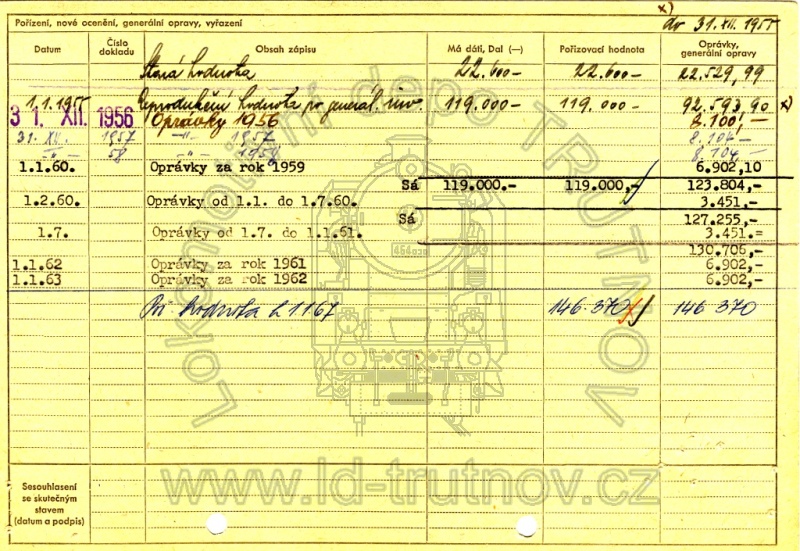 x)
do 31. XII. 1955
Pořízení, nové ocenění, generální opravy, vyřazení
Datum Číslo dokladu Obsah zápisu Má dáti, Dal (—) Pořizovací hodnota Oprávky, generální opravy
Stará hodnota 22.600- 22.600- 22.529,99
1.1.1955 Reprodukční hodnota po generál. inv. 119.000- 119.000- 92.593,90 x)
31. XII. 1956 Oprávky 1956 8.100,-
31. XII. 1957 -"- 1957 8.104-
-"- 58 -"- 1958 8.104-
1.1.60. Oprávky za rok 1959 6.902,10
Sá 119.000.- 119.000,- 123.804,-
1.2.60. Oprávky od 1.1. do 1.7.60. 3.451.-
Sá 127.255,-
1.7. Oprávky od 1.7. do 1.1.61. 3.451.=
130.706,-
1.1.62 Oprávky za rok 1961 6.902,-
1.1.63 Oprávky za rok 1962 6.902,-
hodnota 1.1.67 146.370 146 370
Sesouhlasení
se skutečným
stavem
(datum a podpis)
Lokomotivní depo TRUTNOV
www.ld-trutnov.cz